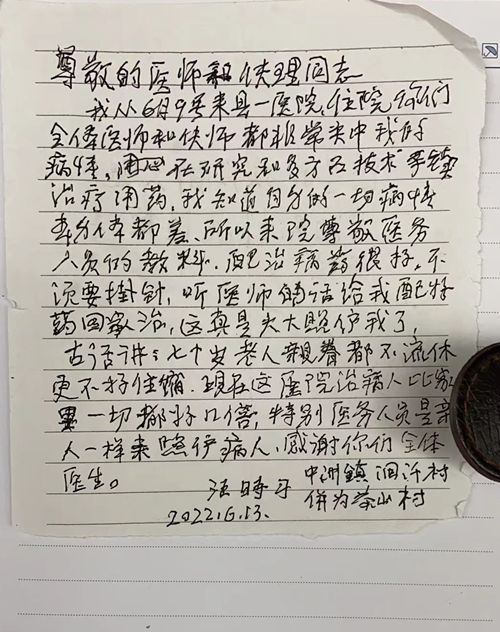 尊敬的医师和伕理同志
我从6月9号来县一医院住院你们
全体医师和伕师都非常关中我的
病情,关心在研究和多方应技术
治疗用药,我知道自分的一切病情
身体都差,所以来院尊敬医务
人员的教,配治病药很好,不
须要掛针,听医师的话给我配好
药回家治,这真是大大照伊我了,
古话讲:七十岁老人亲眷都不流休
更不好住宿,现在这医院治病人比家
里一切都好几倍,特别医务人员是亲
人一样来照伊病人,感谢你们全体
医生。
中洲镇泂汙村
汪時
併为茶山村
2022.6.13.